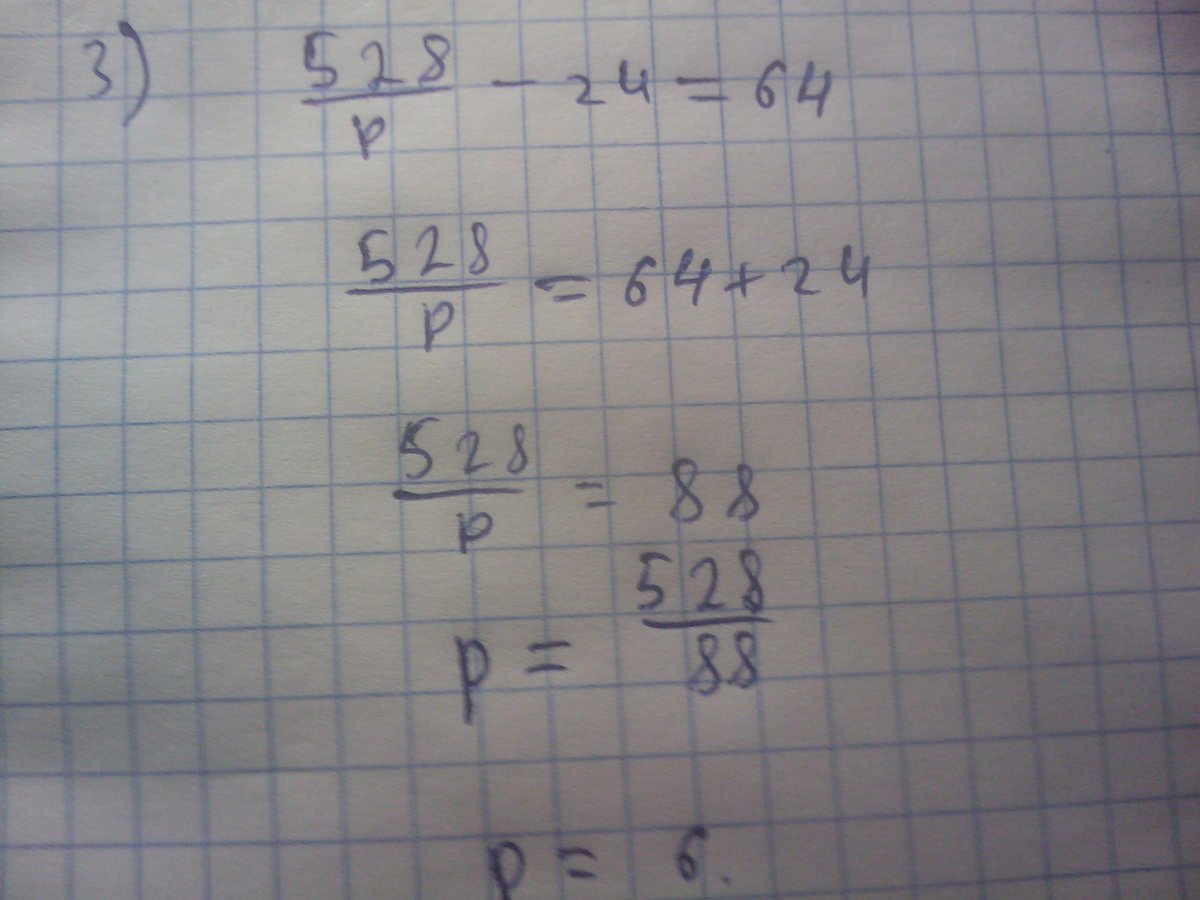 3) 528/p - 24 = 64
528/p = 64 + 24
528/p = 88
p = 528/88
p = 6.